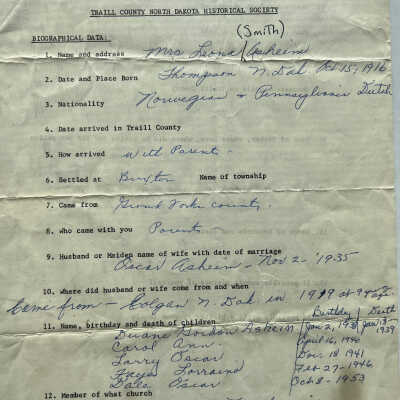 TRAILL COUNTY NORTH DAKOTA HISTORICAL SOCIETY
(Smith)
BIOGRAPHICAL DATA:
1. Name and address Mrs Leona Asheim
2. Date and Place Born Thompson N. Dak Oct 15, 1916
3. Nationality Norwegian + Pennsylvania Dutch
4. Date arrived in Traill County
5. How arrived with Parents
6. Settled at Buxton Name of township
7. Came from Grand Forks county.
8. Who came with you Parents
9. Husband or Maiden name of wife with date of marriage
Oscar Asheim - Nov 2 - 1935
10. Where did husband or wife come from and when
Came from - Colgan N. Dak in 1919 at 9 age.
Birthday Death
11. Name, birthday and death of children
Duane Gordon Asheim Jan 2, Jan 13 - 1939
Carol Ann April 16, 1940
Larry Oscar Dec 18 1941
Faye Lorraine Feb 27 - 1946
Dale Oscar Oct 8 - 1953
12. Member of what church